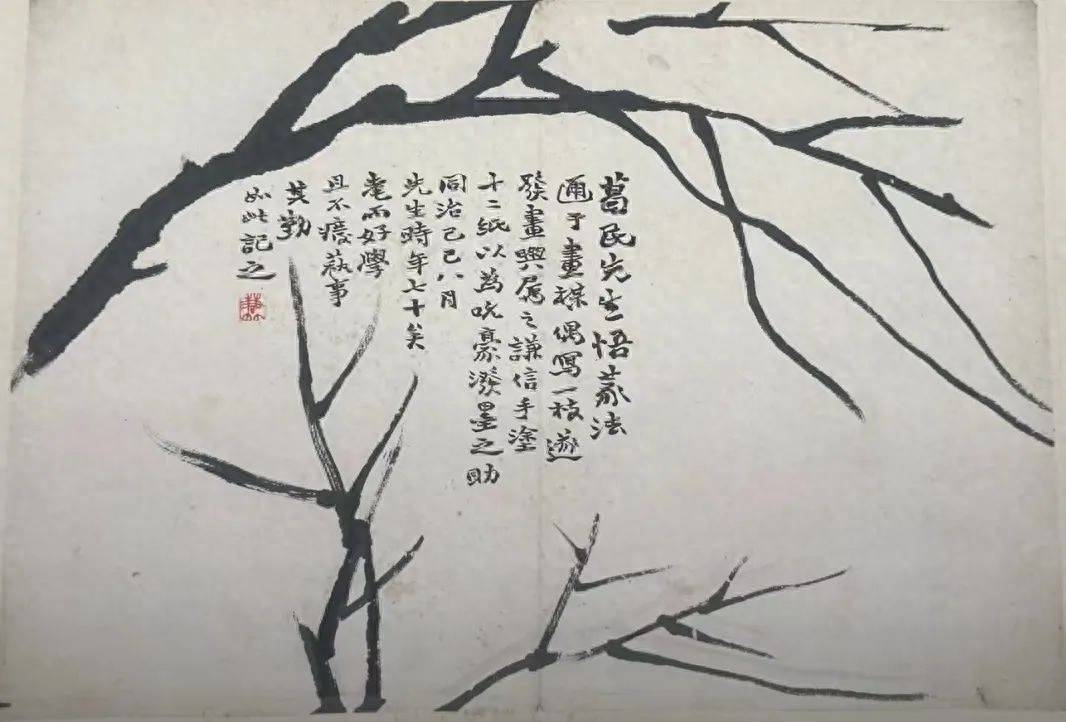 葛民先生悟篆法
通于畫禪偶寫一枝遂
發畫興屬之謙信手塗
十二紙以為吮豪潑墨之助
同治己巳八月
先生時年七十矣
耄而好學
且不癈蓺事
其勤
如此記之